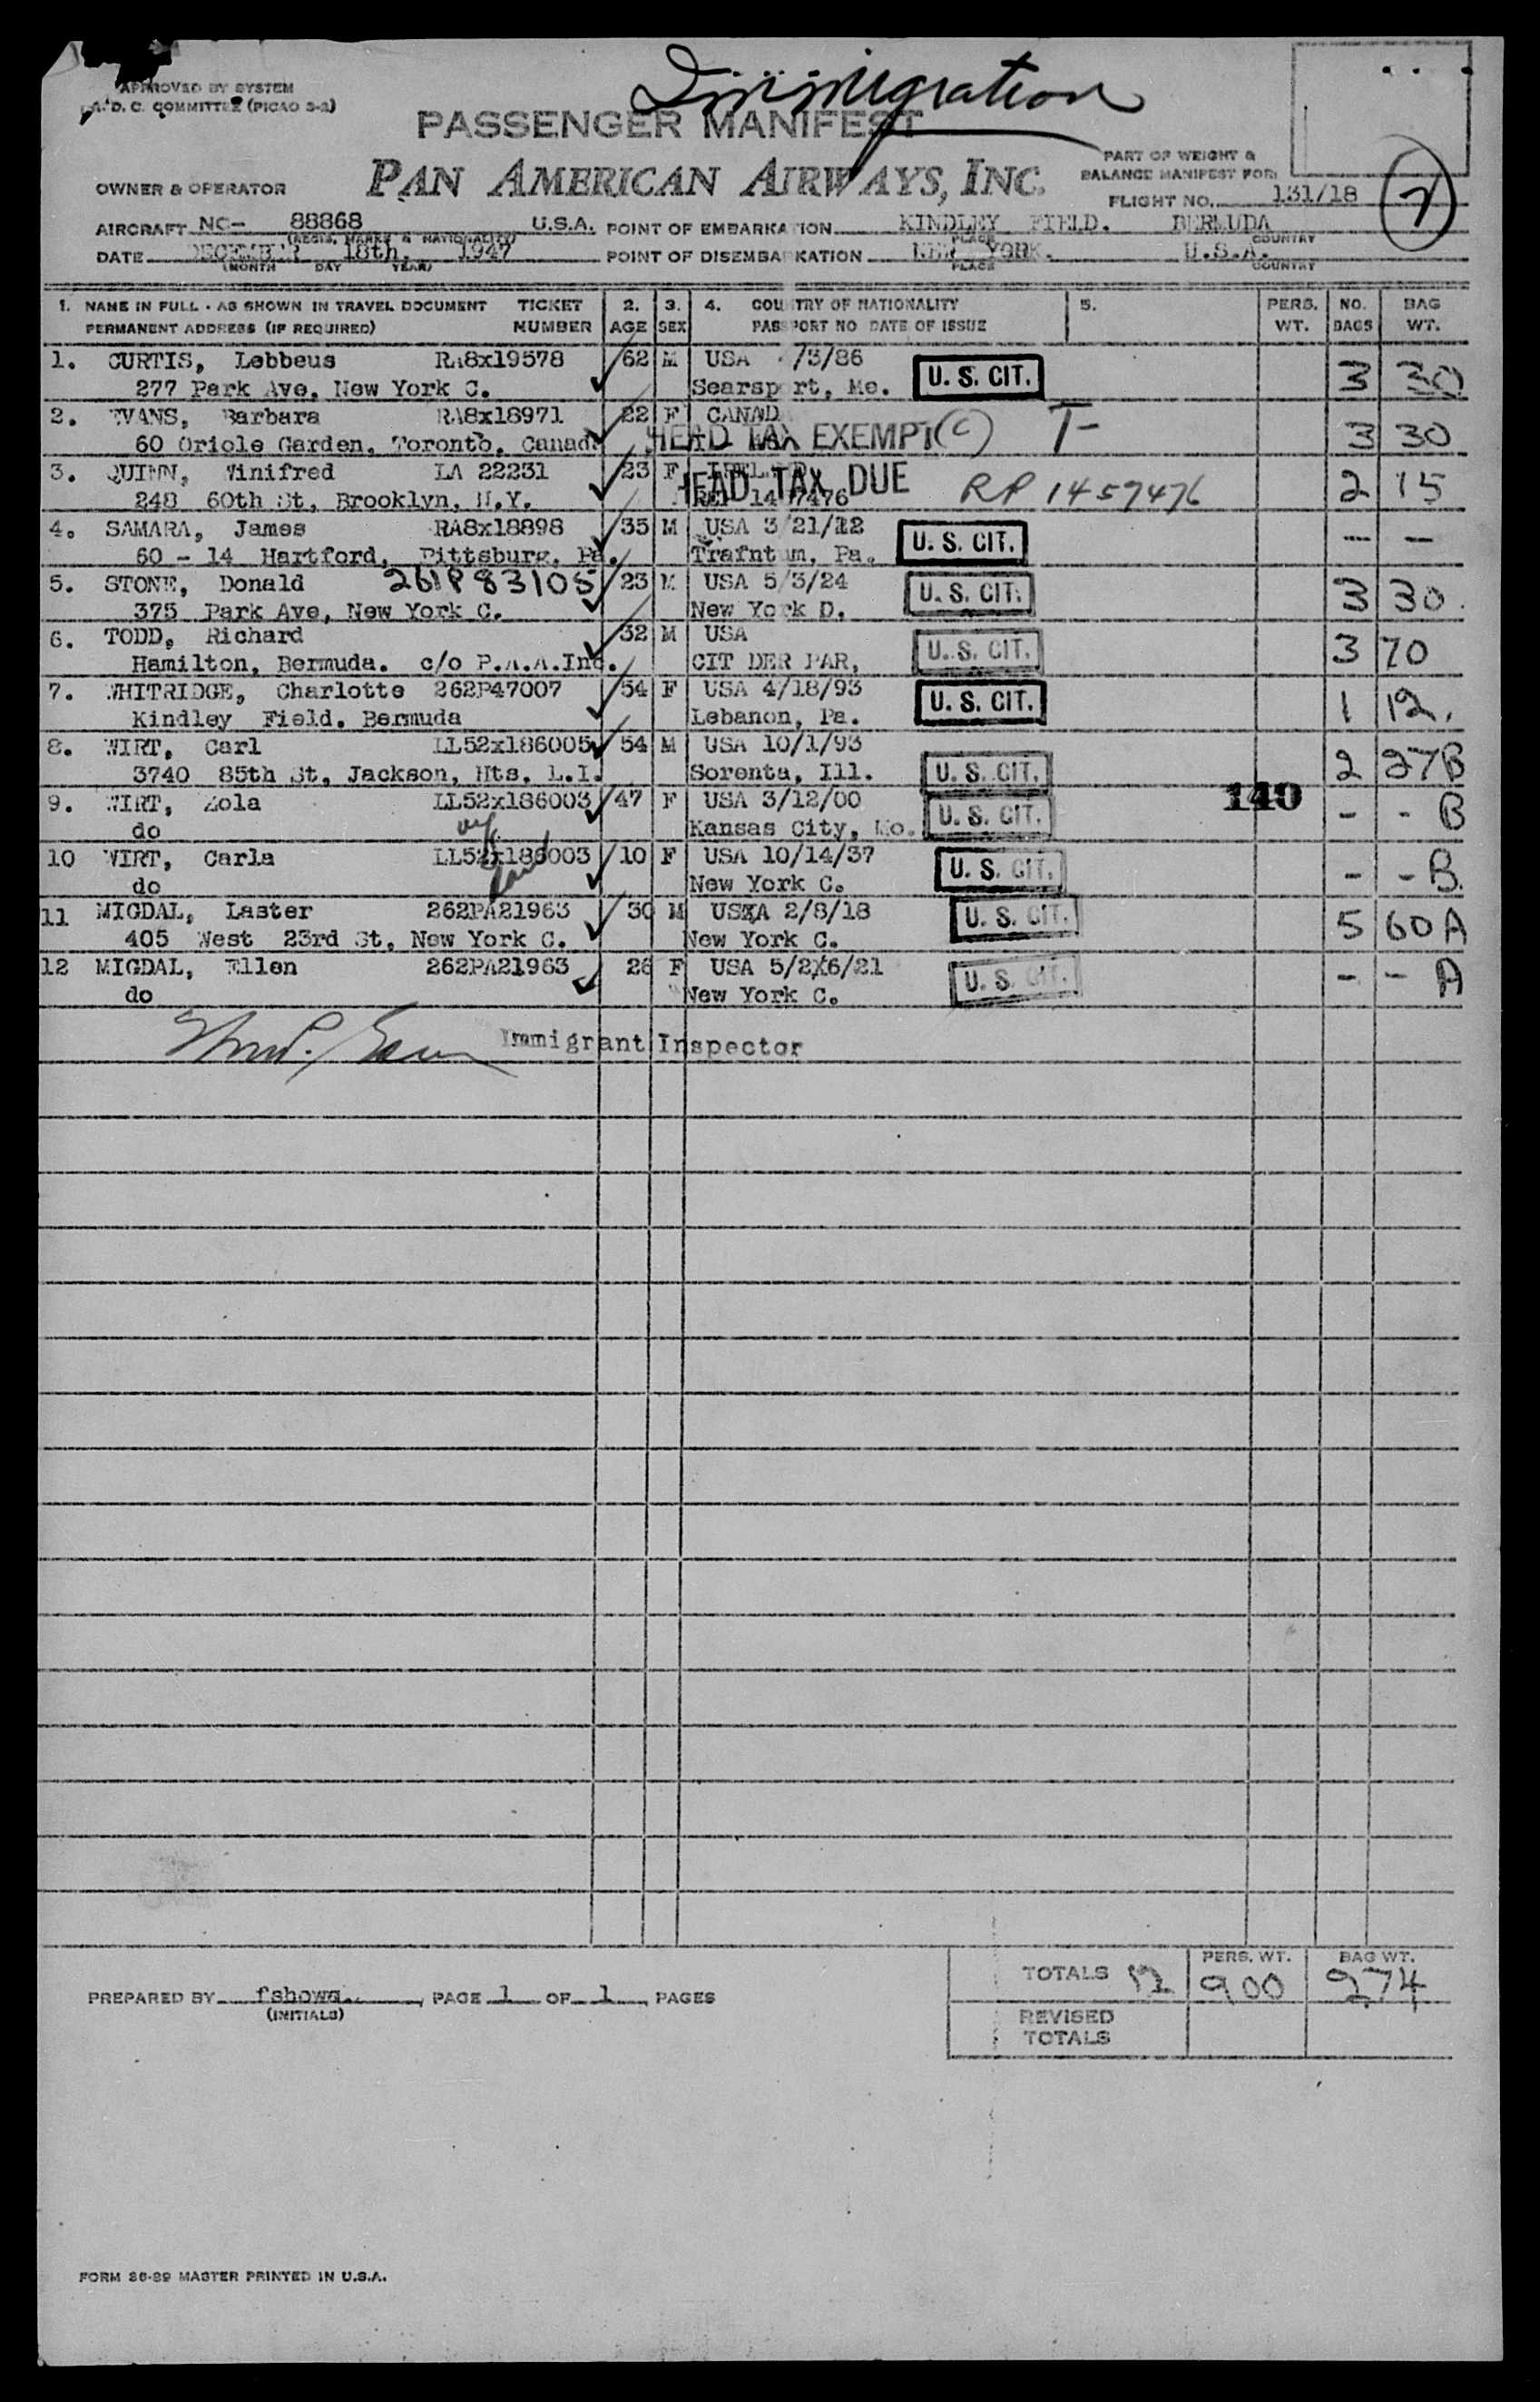 Immigration
APPROVED BY SYSTEM
A.D.C. COMMITTEE (PICAO S-2)
PASSENGER MANIFEST
PAN AMERICAN AIRWAYS, INC.
PART OF WEIGHT &
BALANCE MANIFEST FOR:
OWNER & OPERATOR
FLIGHT NO. 131/18
AIRCRAFT NC- 88868 U.S.A. POINT OF EMBARKATION KINDLEY FIELD. BERMUDA
(REGIS. MARKS & NATIONALITY) PLACE COUNTRY
DATE DECEMBER 18th, 1947 POINT OF DISEMBARKATION NEW YORK. U.S.A.
(MONTH DAY YEAR) PLACE COUNTRY
1. NAME IN FULL - AS SHOWN IN TRAVEL DOCUMENT TICKET 2. 3. 4. COUNTRY OF NATIONALITY 5. PERS. NO. BAG
PERMANENT ADDRESS (IF REQUIRED) NUMBER AGE SEX PASSPORT NO DATE OF ISSUE WT. BAGS WT.
1. CURTIS, Lebbeus RA8x19578 62 M USA /3/86 U. S. CIT. 3 30
277 Park Ave, New York C. Searsport, Me.
2. EVANS, Barbara RA8x18971 22 F CANAD 3 30
60 Oriole Garden, Toronto, Canada HEAD TAX EXEMPT (C) T-
3. QUINN, Winifred LA 22231 23 F HEAD TAX DUE RP 1459476 2 15
248 60th St, Brooklyn, N.Y.
4. SAMARA, James RA8x18898 35 M USA 3/21/12 U. S. CIT. - -
60 - 14 Hartford, Pittsburg, Pa. Trafntum, Pa.
5. STONE, Donald 261P83105 23 M USA 5/3/24 U. S. CIT. 3 30.
375 Park Ave, New York C. New York D.
6. TODD, Richard 32 M USA U. S. CIT. 3 70
Hamilton, Bermuda. c/o P.A.A.Inc. CIT DER PAR,
7. WHITRIDGE, Charlotte 262P47007 54 F USA 4/18/93 U. S. CIT. 1 12.
Kindley Field. Bermuda Lebanon, Pa.
8. WIRT, Carl LL52x186005 54 M USA 10/1/93 U. S. CIT. 2 27B
3740 85th St, Jackson, Hts, L.I. Sorenta, Ill.
9. WIRT, Zola LL52x186003 47 F USA 3/12/00 U. S. CIT. 140 - - B
do Kansas City, Mo.
10 WIRT, Carla LL52x186003 10 F USA 10/14/37 U. S. CIT. - - B.
do New York C.
11 MIGDAL, Laster 262PA21963 30 M USXA 2/8/18 U. S. CIT. 5 60 A
405 West 23rd St, New York C. New York C.
12 MIGDAL, Ellen 262PA21963 26 F USA 5/2X6/21 U. S. CIT. - - A
do New York C.
Immigrant Inspector
PERS. WT. BAG WT.
TOTALS 12 900 274
PREPARED BY fshowa. PAGE 1 OF 1 PAGES
(INITIALS)
REVISED
TOTALS
FORM 26-29 MASTER PRINTED IN U.S.A.